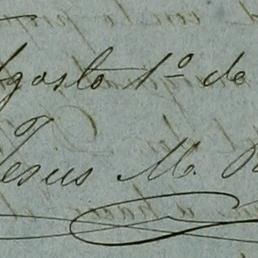 Agosto 1º de
Jesus M. R